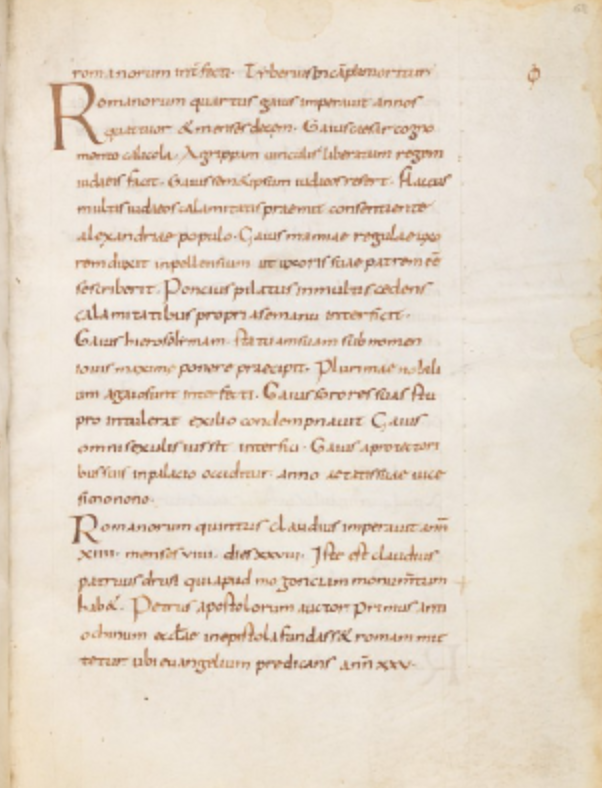 romanorum int̄ fecti. Tyberius in cāpania moritur
Romanorum quartus gaius imperauit annos
quattuor & menses decem. Gaius caesar cogno
mento calicola. Agrippam uinculis liberatum regem
iudaeis facit. Gaius sem&ipsum in deos refert. flaccus
multis iudaeos calamitatis praemit consentiente
alexandriae populo. Gaius mamiae regulae uxo
rem duxit inpellens eum ut uxoris suae patrem eē
se scriberit. Poncius pilatus in multis cedens
calamitatibus propria se manu interficit.
Gaius hierosolimam. statuam suam sub nomen
iouis maximi ponere praecipit. Plurimae nobili
um a gaio sunt interfecti. Gaius sorores suas stu
pro intulerat exilio condempnauit Gaius
omnis exulis iussit interfici. Gaius a protectori
bus suis in palacio occiditur. anno aetatis suae uice
simo nono.
Romanorum quintus claudius imperauit ann̄
xiiii. menses viiii. dies xxviii. Iste est claudius
patruus drusi qui apud mogonciam monumētum
hab&. Petrus apostolorum auctor primus anti
ochinum eccl̄ae in epistola fundass& romam mit
tetur ubi euangelium predicans ann̄ xxv.